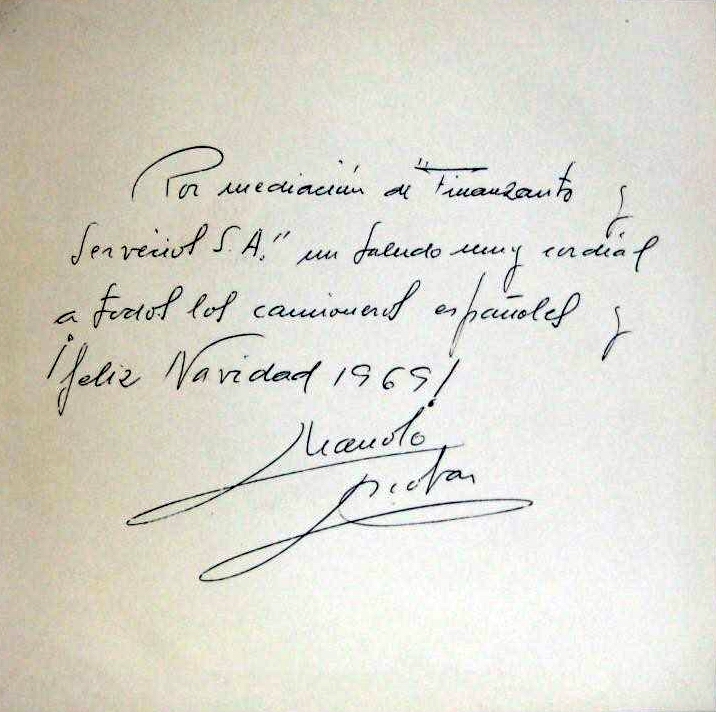 Por mediación de "Finanzauto y
Servicios S.A." un saludo muy cordial
a todos los camioneros españoles y
¡feliz Navidad 1969!
Manolo
Escobar